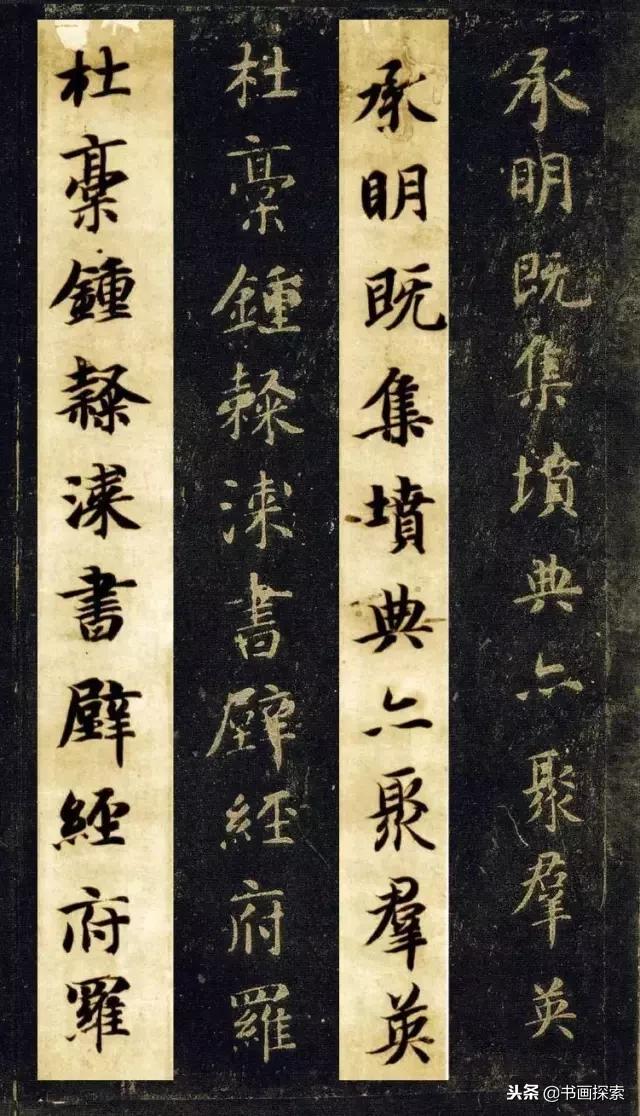 承明既集墳典亦聚羣英
承明既集墳典亦聚羣英
杜稾鍾隸漆書壁經府羅
杜稾鍾隸漆書壁經府羅
头条 @书画探索